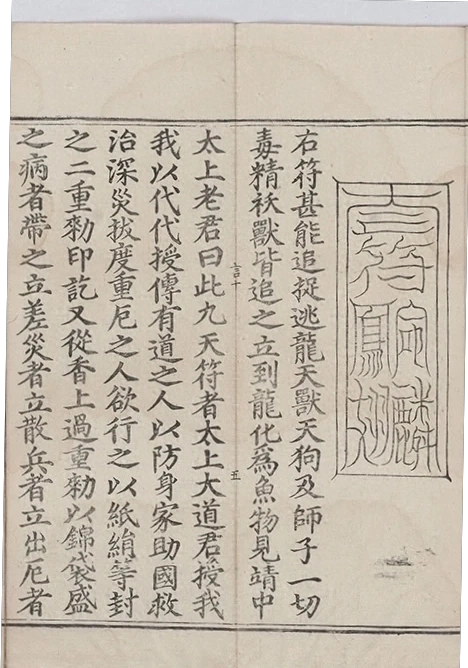 右符甚能追捉逃龍天獸天狗及師子一切
毒精祅獸皆追之立到龍化爲魚物見靖中
言十 五
太上老君曰此九天符者太上大道君授我
我以代代授傳有道之人以防身家助國救
治深災拔度重厄之人欲行之以紙絹等封
之二重勑印訖又從香上過重勑以錦袋盛
之病者帶之立差災者立散兵者立出厄者